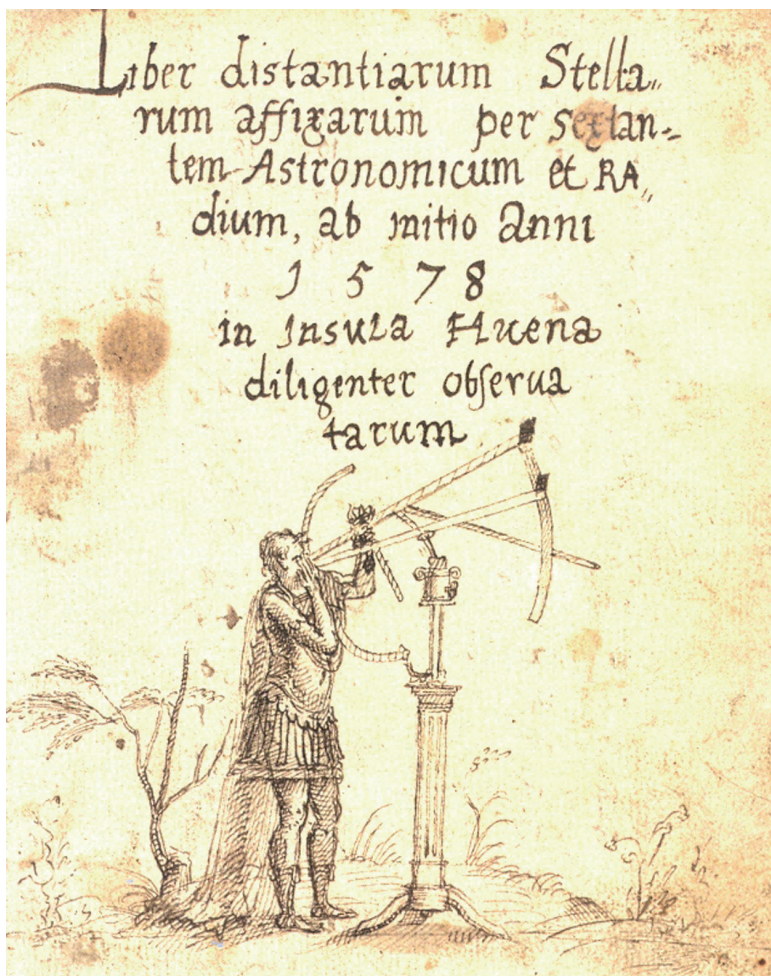 Liber distantiarum Stella„
rum affixarum per sextan-
tem Astronomicum et RA„
dium, ab initio Anni
1578
in Insula Huena
diligenter obſerua
tarum